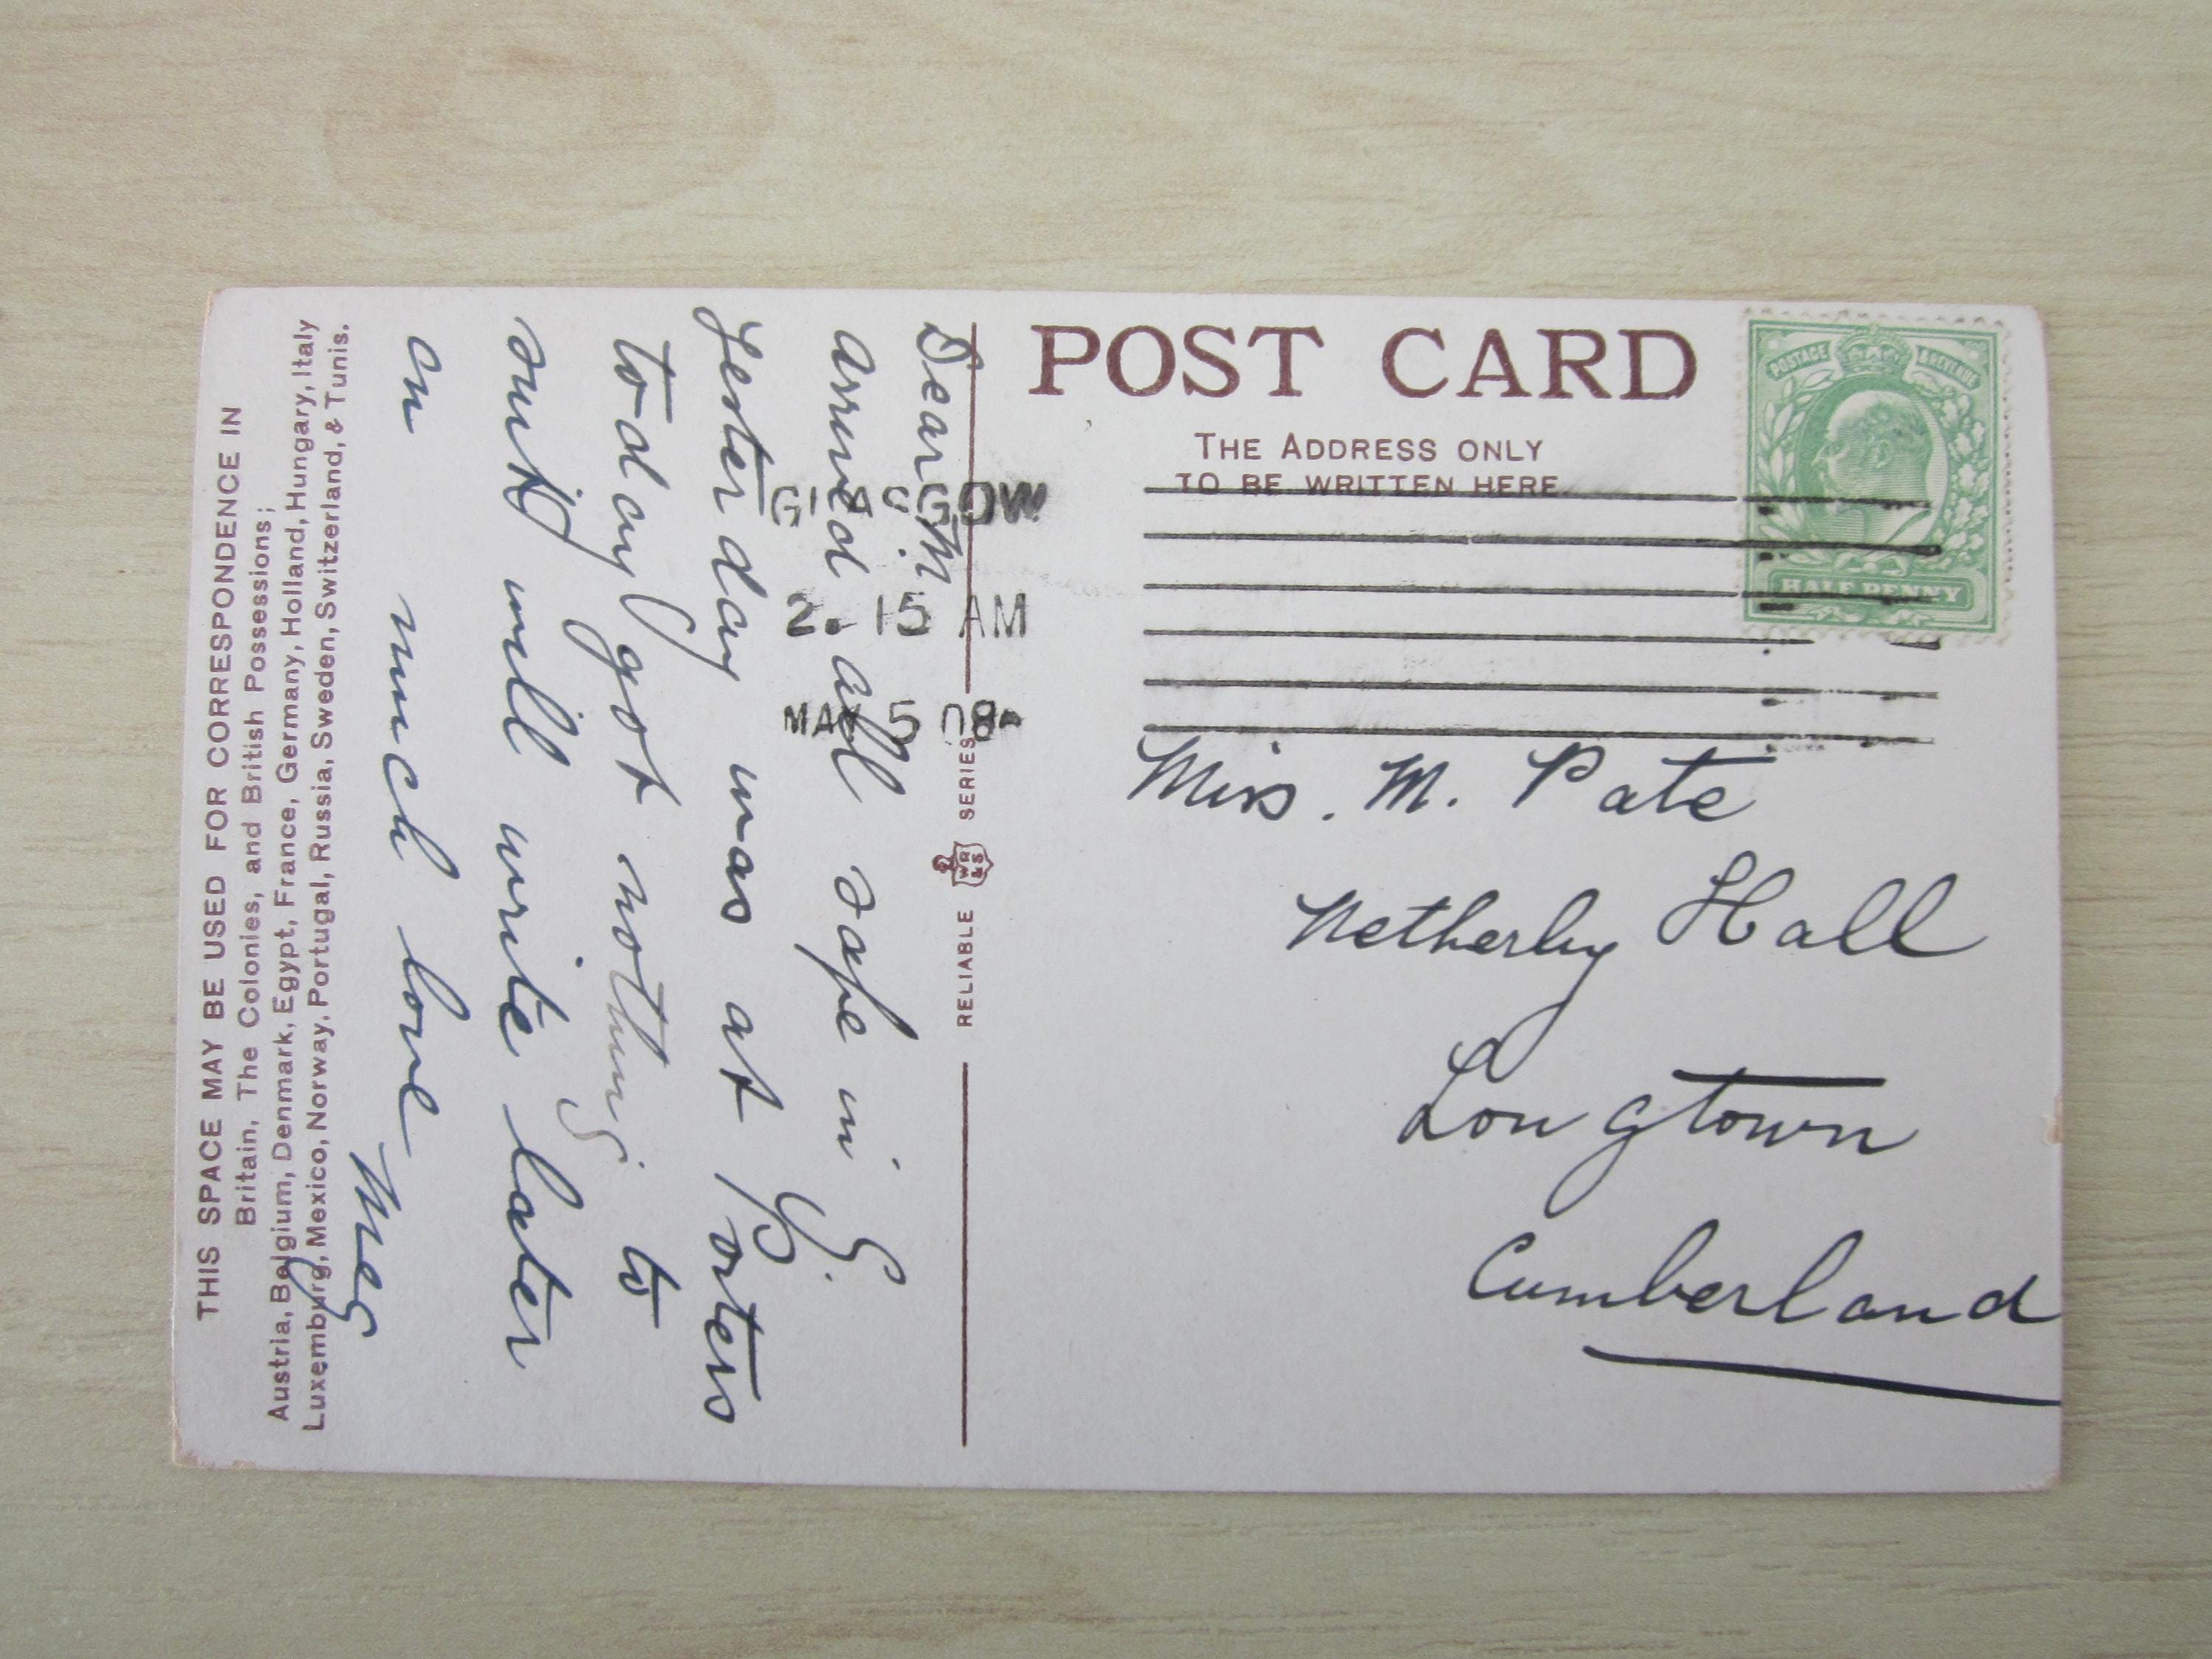 THIS SPACE MAY BE USED FOR CORRESPONDENCE IN
Britain, The Colonies, and British Possessions;
Austria, Belgium, Denmark, Egypt, France, Germany, Holland, Hungary, Italy
Luxemburg, Mexico, Norway, Portugal, Russia, Sweden, Switzerland, & Tunis.
Dear M
arrived all safe in G.
yesterday was at Porters
today got nothing to
suit will write later
on much love Meg
RELIABLE WR&S SERIES
GLASGOW
2. 15 AM
MAY 5 08
POST CARD
THE ADDRESS ONLY
TO BE WRITTEN HERE
POSTAGE & REVENUE
HALF PENNY
Miss. M. Pate
Netherby Hall
Longtown
Cumberland